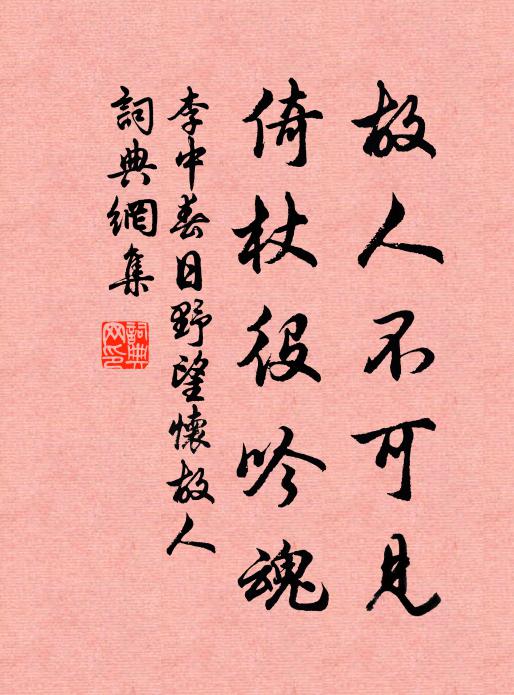 故人不可見
倚杖役吟魂
李中春日野望懷故人
詞典網集
詞典网印